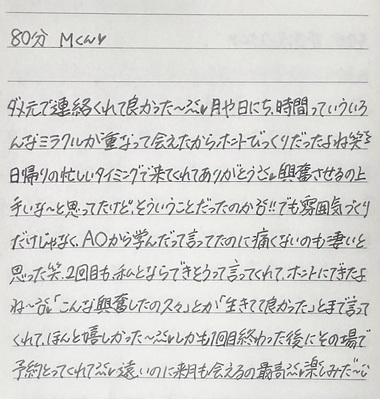 80分 Mくん♥
ダメ元で連絡くれて良かった〜♥月や日にち、時間っていういろ
んなミラクルが重なって会えたからホントびっくりだったよね笑
日帰りの忙しいタイミングで来てくれてありがとう♥興奮させるの上
手いな〜と思ってたけど、そういうことだったのか!!でも雰囲気づくり
だけじゃなく、AOから学んだって言ってたのに痛くないのも凄いと
思った笑.2回目も、私とならできそうって言ってくれて、ホントにできたよ
ね〜「こんな興奮したの久々」とか「生きてて良かった」とまで言って
くれて、ほんと嬉しかった〜♥しかも1回目終わった後にその場で
予約とってくれて♥遠いのに来月も会えるの最高♥楽しみだ〜